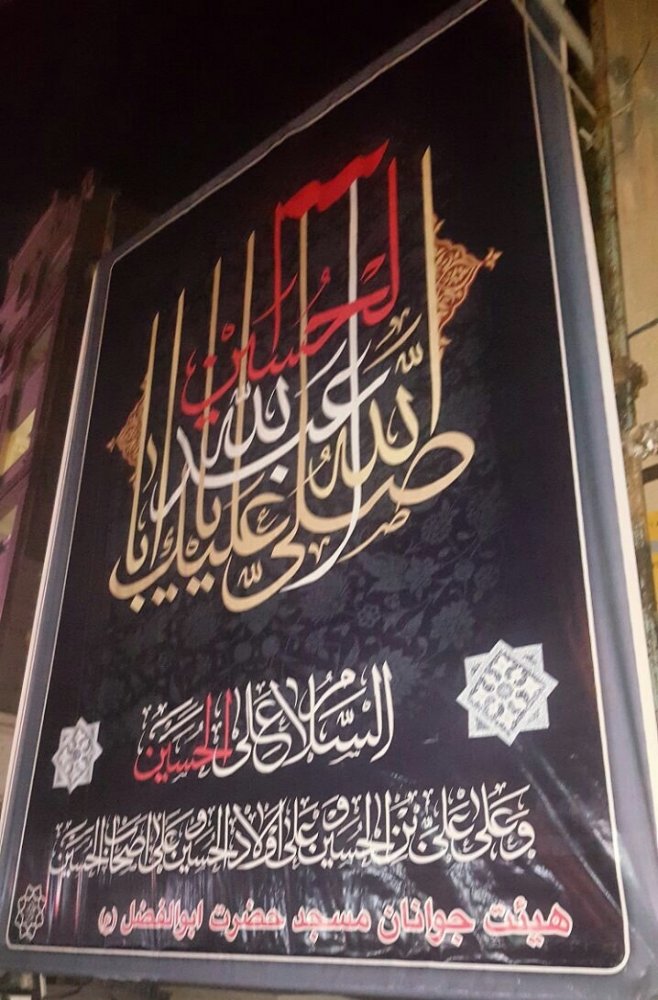 صلی الله علیك یا ابا عبد الله الحسین
السلام علی الحسین
وعلی علی بن الحسین وعلی اولاد الحسین وعلی اصحاب الحسین
هیئت جوانان مسجد حضرت ابوالفضل (ع)